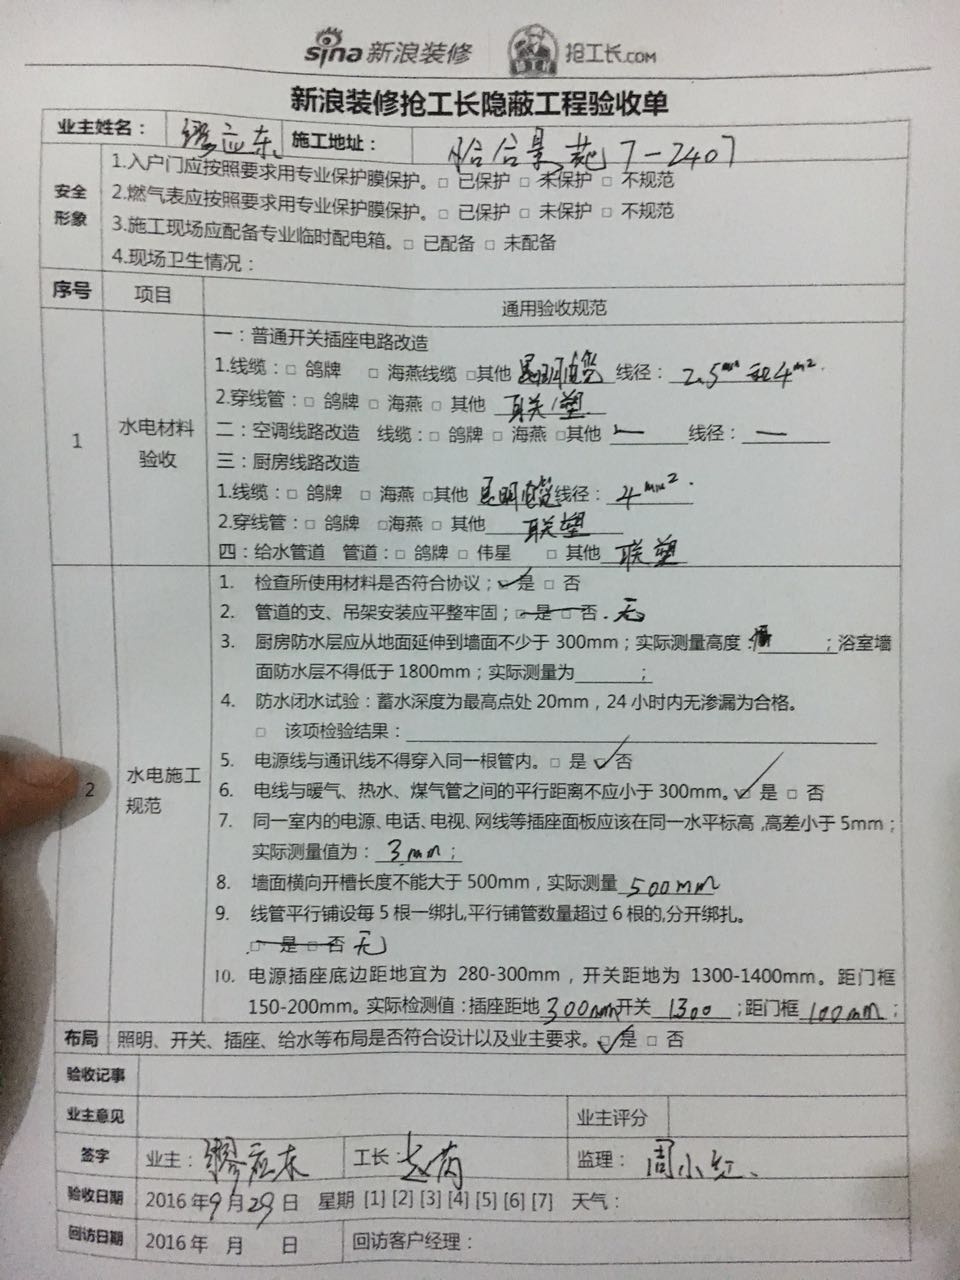 sina 新浪装修 抢工长.COM
新浪装修抢工长隐蔽工程验收单
业主姓名： 缪应东 施工地址： 怡合景苑7-2407
安全形象
1.入户门应按照要求用专业保护膜保护。□ 已保护 □ 未保护 □ 不规范
2.燃气表应按照要求用专业保护膜保护。□ 已保护 □ 未保护 □ 不规范
3.施工现场应配备专业临时配电箱。□ 已配备 □ 未配备
4.现场卫生情况：
序号 项目 通用验收规范
1 水电材料验收
一：普通开关插座电路改造
1.线缆：□ 鸽牌 □ 海燕线缆 □其他 昆明电缆 线径： 2.5mm²和4mm²
2.穿线管：□ 鸽牌 □ 海燕 □ 其他 联塑
二：空调线路改造 线缆：□ 鸽牌 □ 海燕 □其他 — 线径： —
三：厨房线路改造
1.线缆：□ 鸽牌 □ 海燕 □其他 昆明电缆 线径： 4mm²
2.穿线管：□ 鸽牌 □海燕 □ 其他 联塑
四：给水管道 管道：□ 鸽牌 □ 伟星 □ 其他 联塑
2 水电施工规范
1. 检查所使用材料是否符合协议；☑ 是 □ 否
2. 管道的支、吊架安装应平整牢固；□ 是 □ 否．无
3. 厨房防水层应从地面延伸到墙面不少于 300mm；实际测量高度： ；浴室墙
面防水层不得低于 1800mm；实际测量为 ；
4. 防水闭水试验：蓄水深度为最高点处 20mm，24 小时内无渗漏为合格。
□ 该项检验结果：
5. 电源线与通讯线不得穿入同一根管内。□ 是 ☑ 否
6. 电线与暖气、热水、煤气管之间的平行距离不应小于 300mm。☑ 是 □ 否
7. 同一室内的电源、电话、电视、网线等插座面板应该在同一水平标高,高差小于 5mm；
实际测量值为： 3mm；
8. 墙面横向开槽长度不能大于 500mm，实际测量 500mm
9. 线管平行铺设每 5 根一绑扎,平行铺管数量超过 6 根的,分开绑扎。
□ 是 □ 否 无
10. 电源插座底边距地宜为 280-300mm，开关距地为 1300-1400mm。距门框
150-200mm。实际检测值：插座距地 300mm 开关 1300 ；距门框 100mm；
布局 照明、开关、插座、给水等布局是否符合设计以及业主要求。☑ 是 □ 否
验收记事
业主意见 业主评分
签字 业主： 缪应东 工长： 赵芮 监理： 周小红
验收日期 2016 年 9 月 29 日 星期 [1] [2] [3] [4] [5] [6] [7] 天气：
回访日期 2016 年 月 日 回访客户经理：